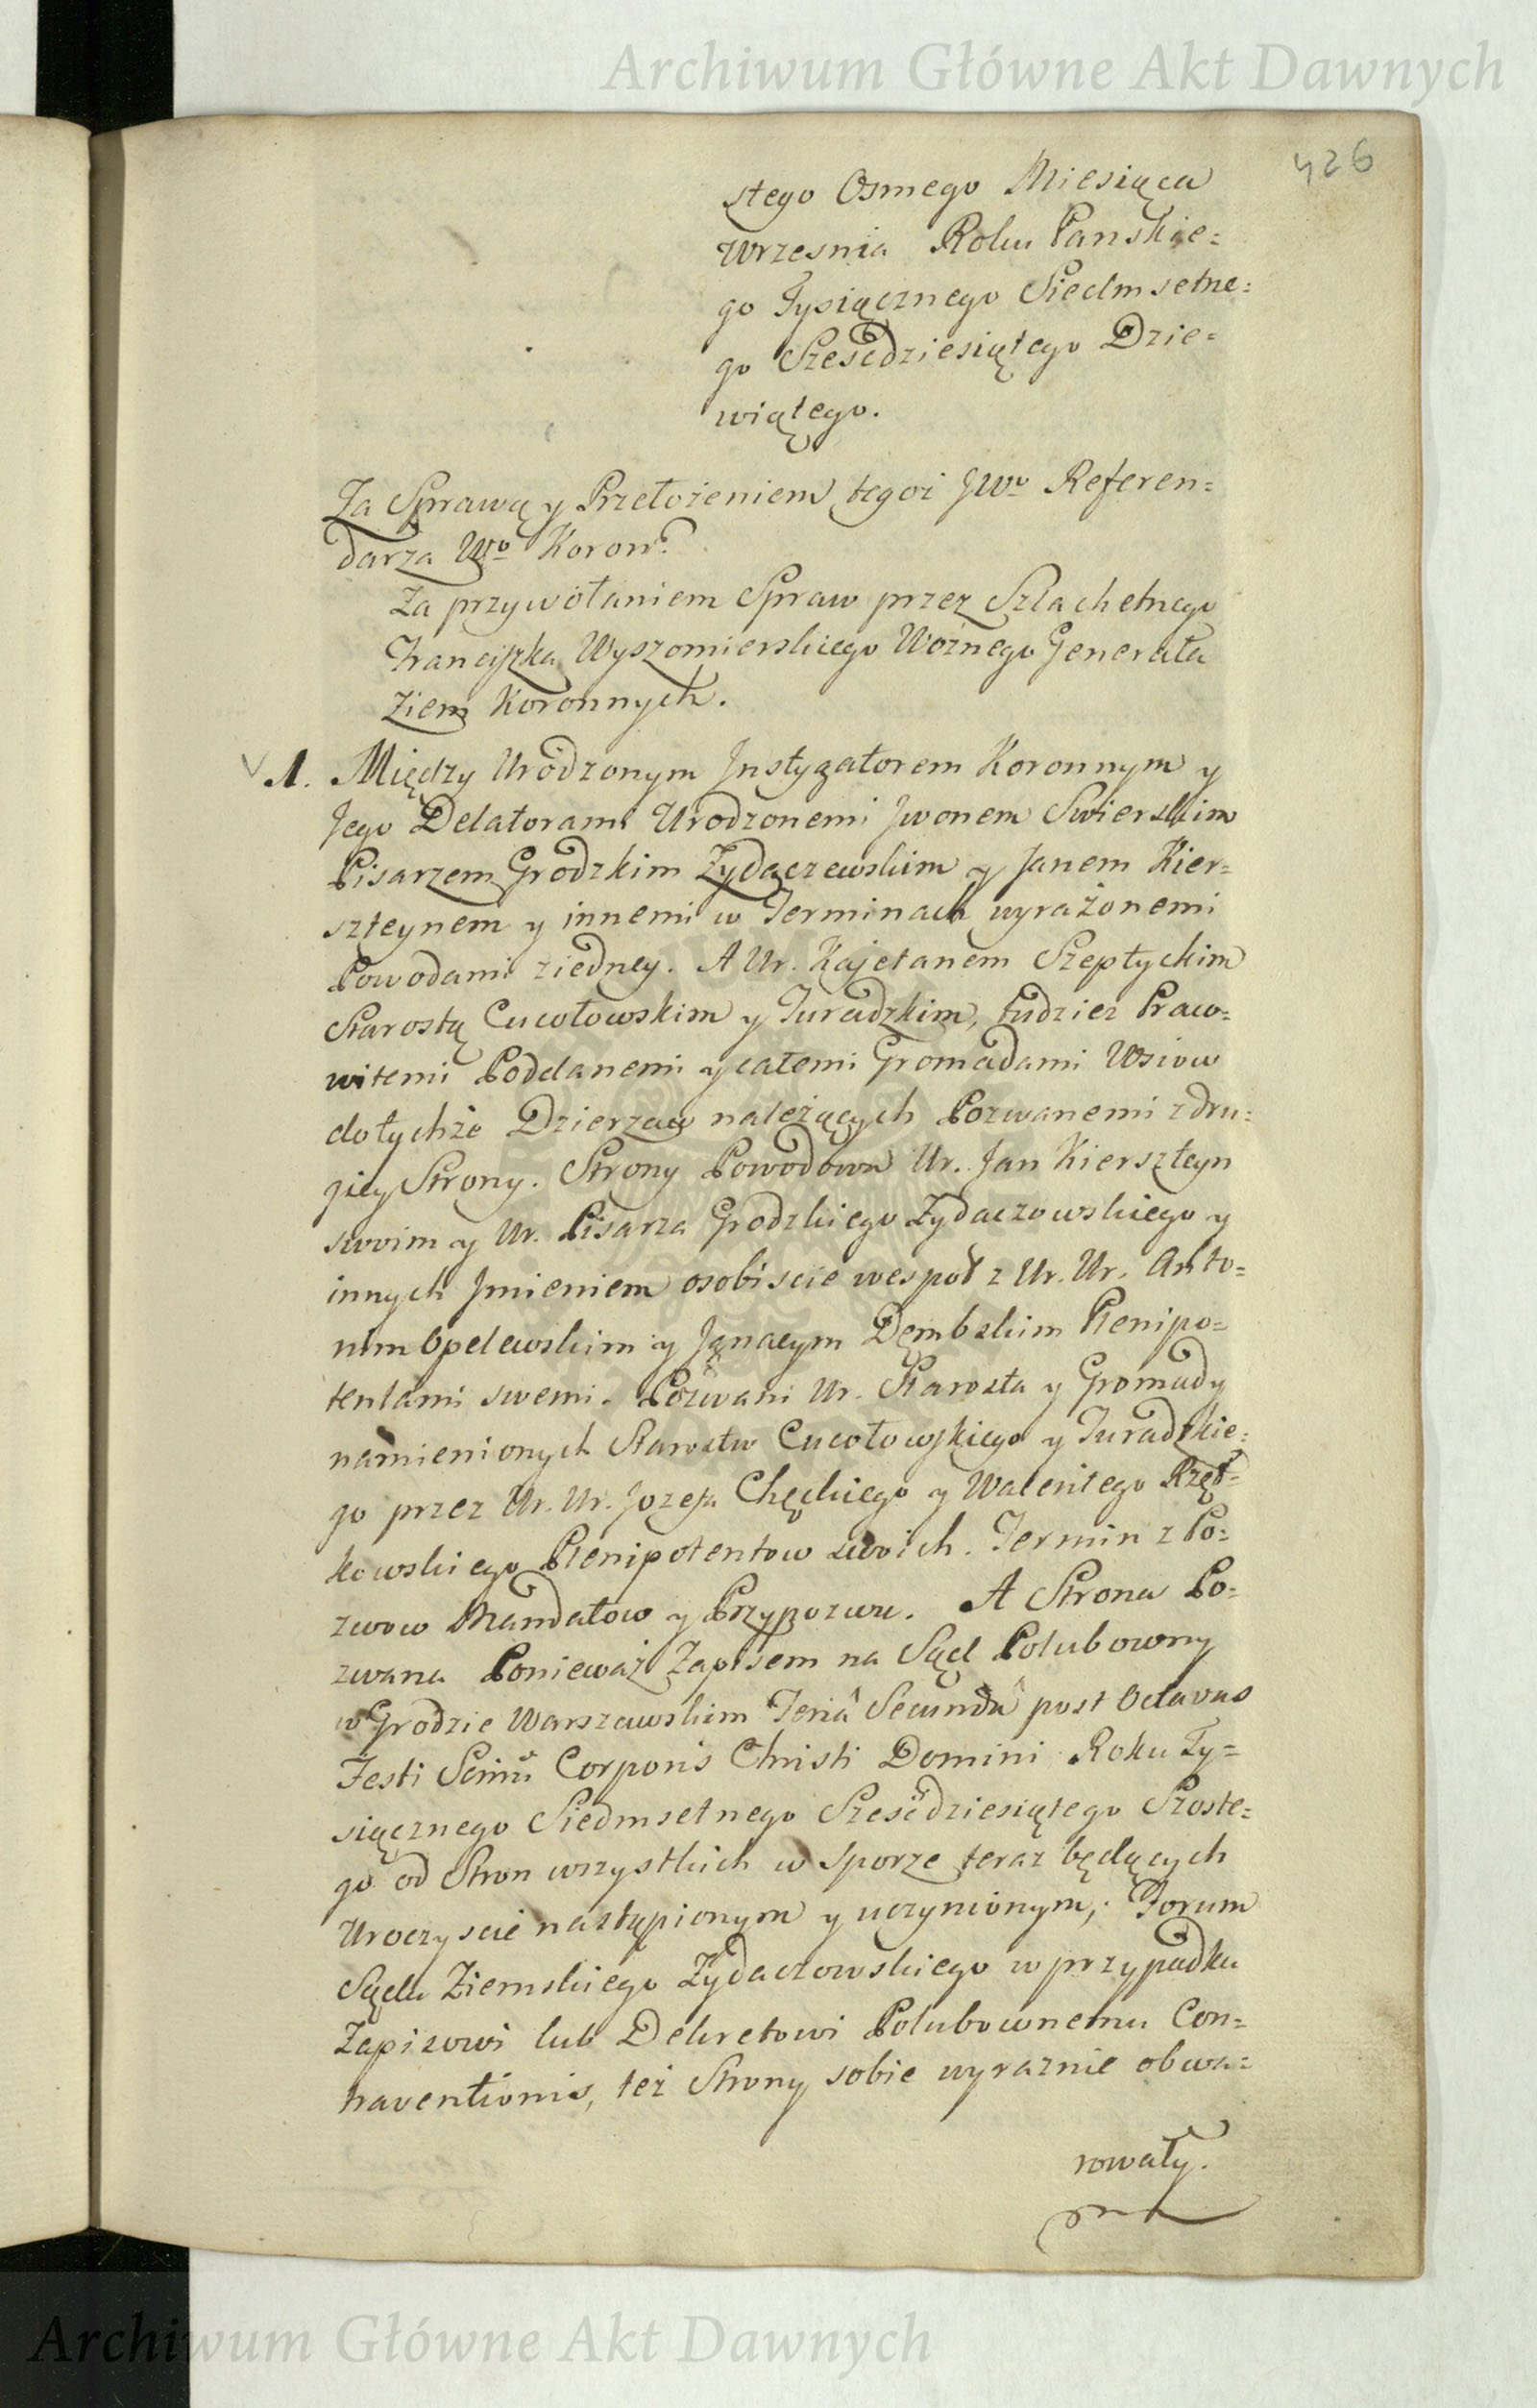 Archiwum Główne Akt Dawnych
426
stego Osmego Miesiąca
Wrzesnia Roku Panskie=
go Tysiącznego Siedmsetne=
go Szescdziesiątego Dzie=
wiątego.
Za Sprawą y Przełożeniem tegoż JWo Referen=
darza Wo Koronn.
Za przywołaniem Spraw przez Szlachetnego
Franciszka Wyszomierskiego Woźnego Generała
Ziem Koronnych.
1. Między Urodzonym Instygatorem Koronnym y
Jego Delatorami Urodzonemi Jwonem Swierskim
Pisarzem Grodzkim Zydaczewskim y Janem Kier=
szteynem y innemi w Terminach wyrażonemi
Powodami ziedney. A Ur. Kajetanem Szeptyckim
Starostą Cucołowskim y Turadzkim, tudziez Praco=
witemi Poddanemi y całemi Gromadami Wsiow
dotychże Dzierzaw należących Pozwanemi zdru=
giey Strony. Strony Powodowa Ur. Jan Kierszteyn
swoim y Ur. Pisarza Grodzkiego Zydaczowskiego y
innych Jmieniem osobiscie wespoł z Ur. Ur. Anto=
nim Opelewskim y Jgnacym Dębmskim Plenipo=
tentami swemi. Pozwani Ur. Starosta y Gromady
namienionych Starostw Cucołowskiego y Turadzkie=
go przez Ur. Ur. Jozefa Chęckiego y Walentego Rzęt=
kowskiego Plenipotentow swoich. Termin z Po=
zwow Mandatow y Przypozwu. A Strona Po=
zwana Ponieważ Zapisem na Sąd Polubowny
w Grodzie Warszawskim Feriâ Secundâ post Octavas
Festi Scimi Corporis Christi Domini Roku Ty=
siącznego Siedmsetnego Szescdziesiątego Szoste=
go od Stron wszystkich w sporze teraz będących
Uroczyscie nastąpionym y uczynionym; Forum
Sądu Ziemskiego Zydaczowskiego w przypadku
Zapisowi lub Dekretowi Polubownemu Con=
traventionis, też Strony sobie wyraznie obwa=
rowały.
Archiwum Główne Akt Dawnych